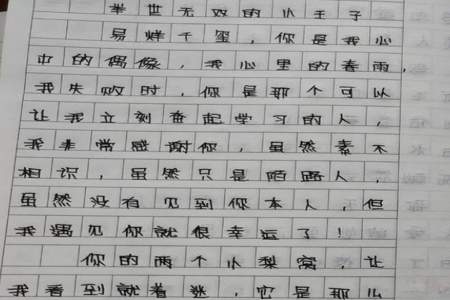 举世无双的小王子
易烊千玺，你是我心
中的偶像，我心里的春雨，
我失败时，你是那个可以
让我立刻奋起学习的人，
我非常感谢你，虽然素不
相识，虽然只是陌路人，
虽然没有见到你本人，但
我遇见你就很幸运了！
你的两个小梨窝，让
我看到就着迷，它是那么